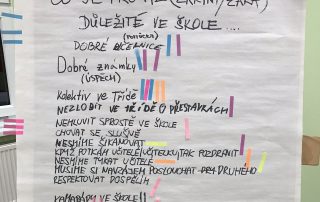 CO JE PRO MĚ (ŽÁKYNI/ŽÁKA)
DŮLEŽITÉ VE ŠKOLE ....
DOBRÉ UČEBNICE
Dobré známky
(ÚSPĚCH)
Kolektiv ve Třídě
NEZLOBIT VE TŘÍDĚ O PŘESTÁVKÁCH
NEMLUVIT SPROSTĚ VE ŠKOLE
CHOVAT SE SLUŠNĚ
NESMÍME ŠIKANOVAT
KDYŽ POTKÁM UČITELE/UČITELKU, TAK POZDRAVIT
NESMÍME TYKAT UČITELE
MUSÍME SI NAVZÁJEM POSLOUCHAT
DRUHÉHO
RESPEKTOVAT DOSPĚLÍH
KAMARÁDY VE ŠKOLE